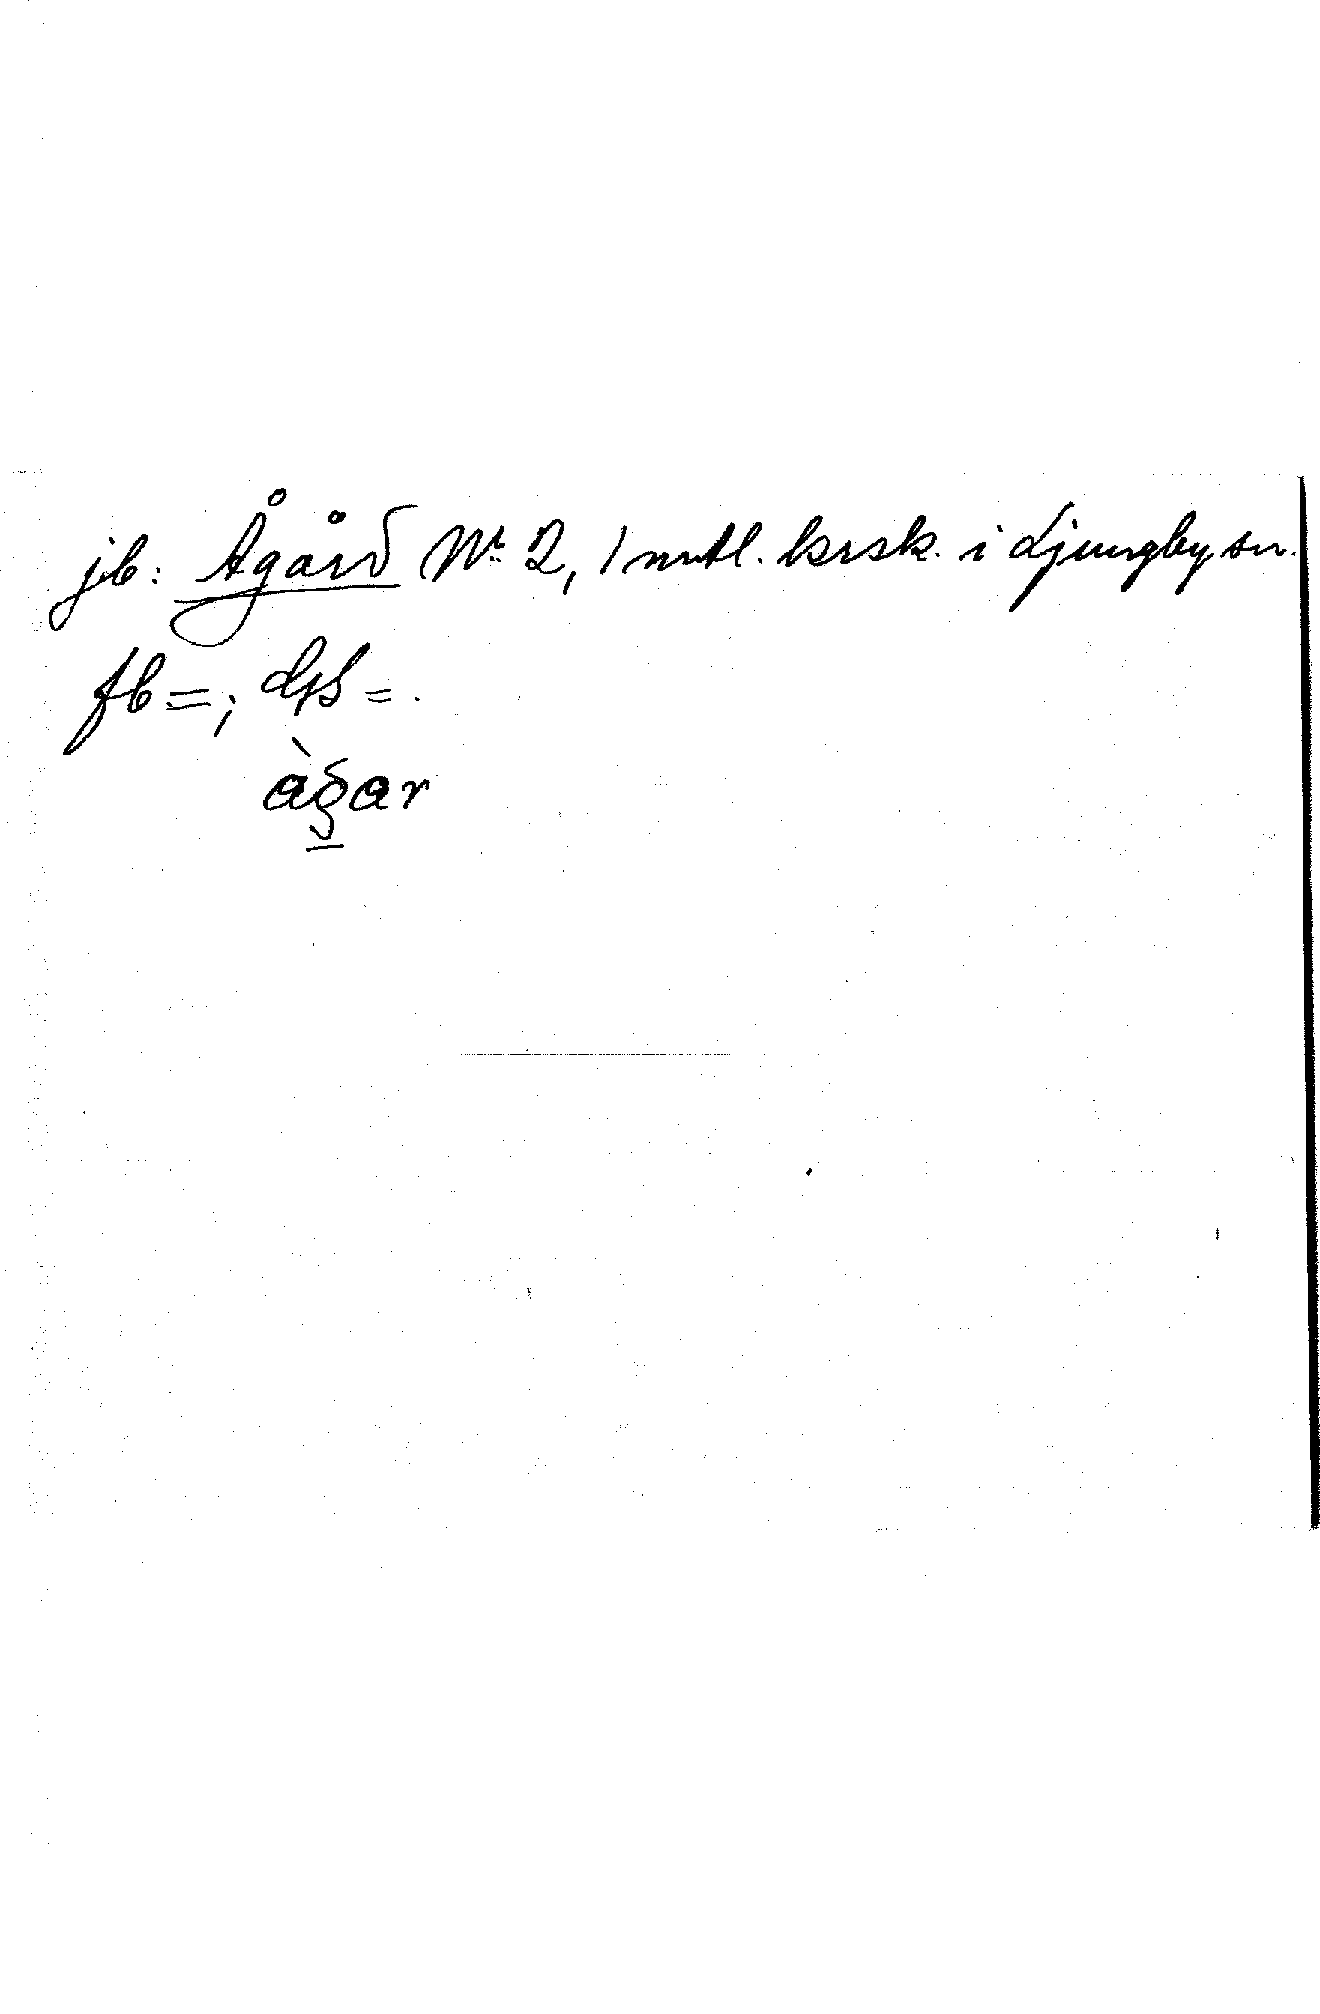 jb: Ågård Nr 2, 1 mtl. krsk. i Ljungby sn.
fb = ; dfb = .
àgar